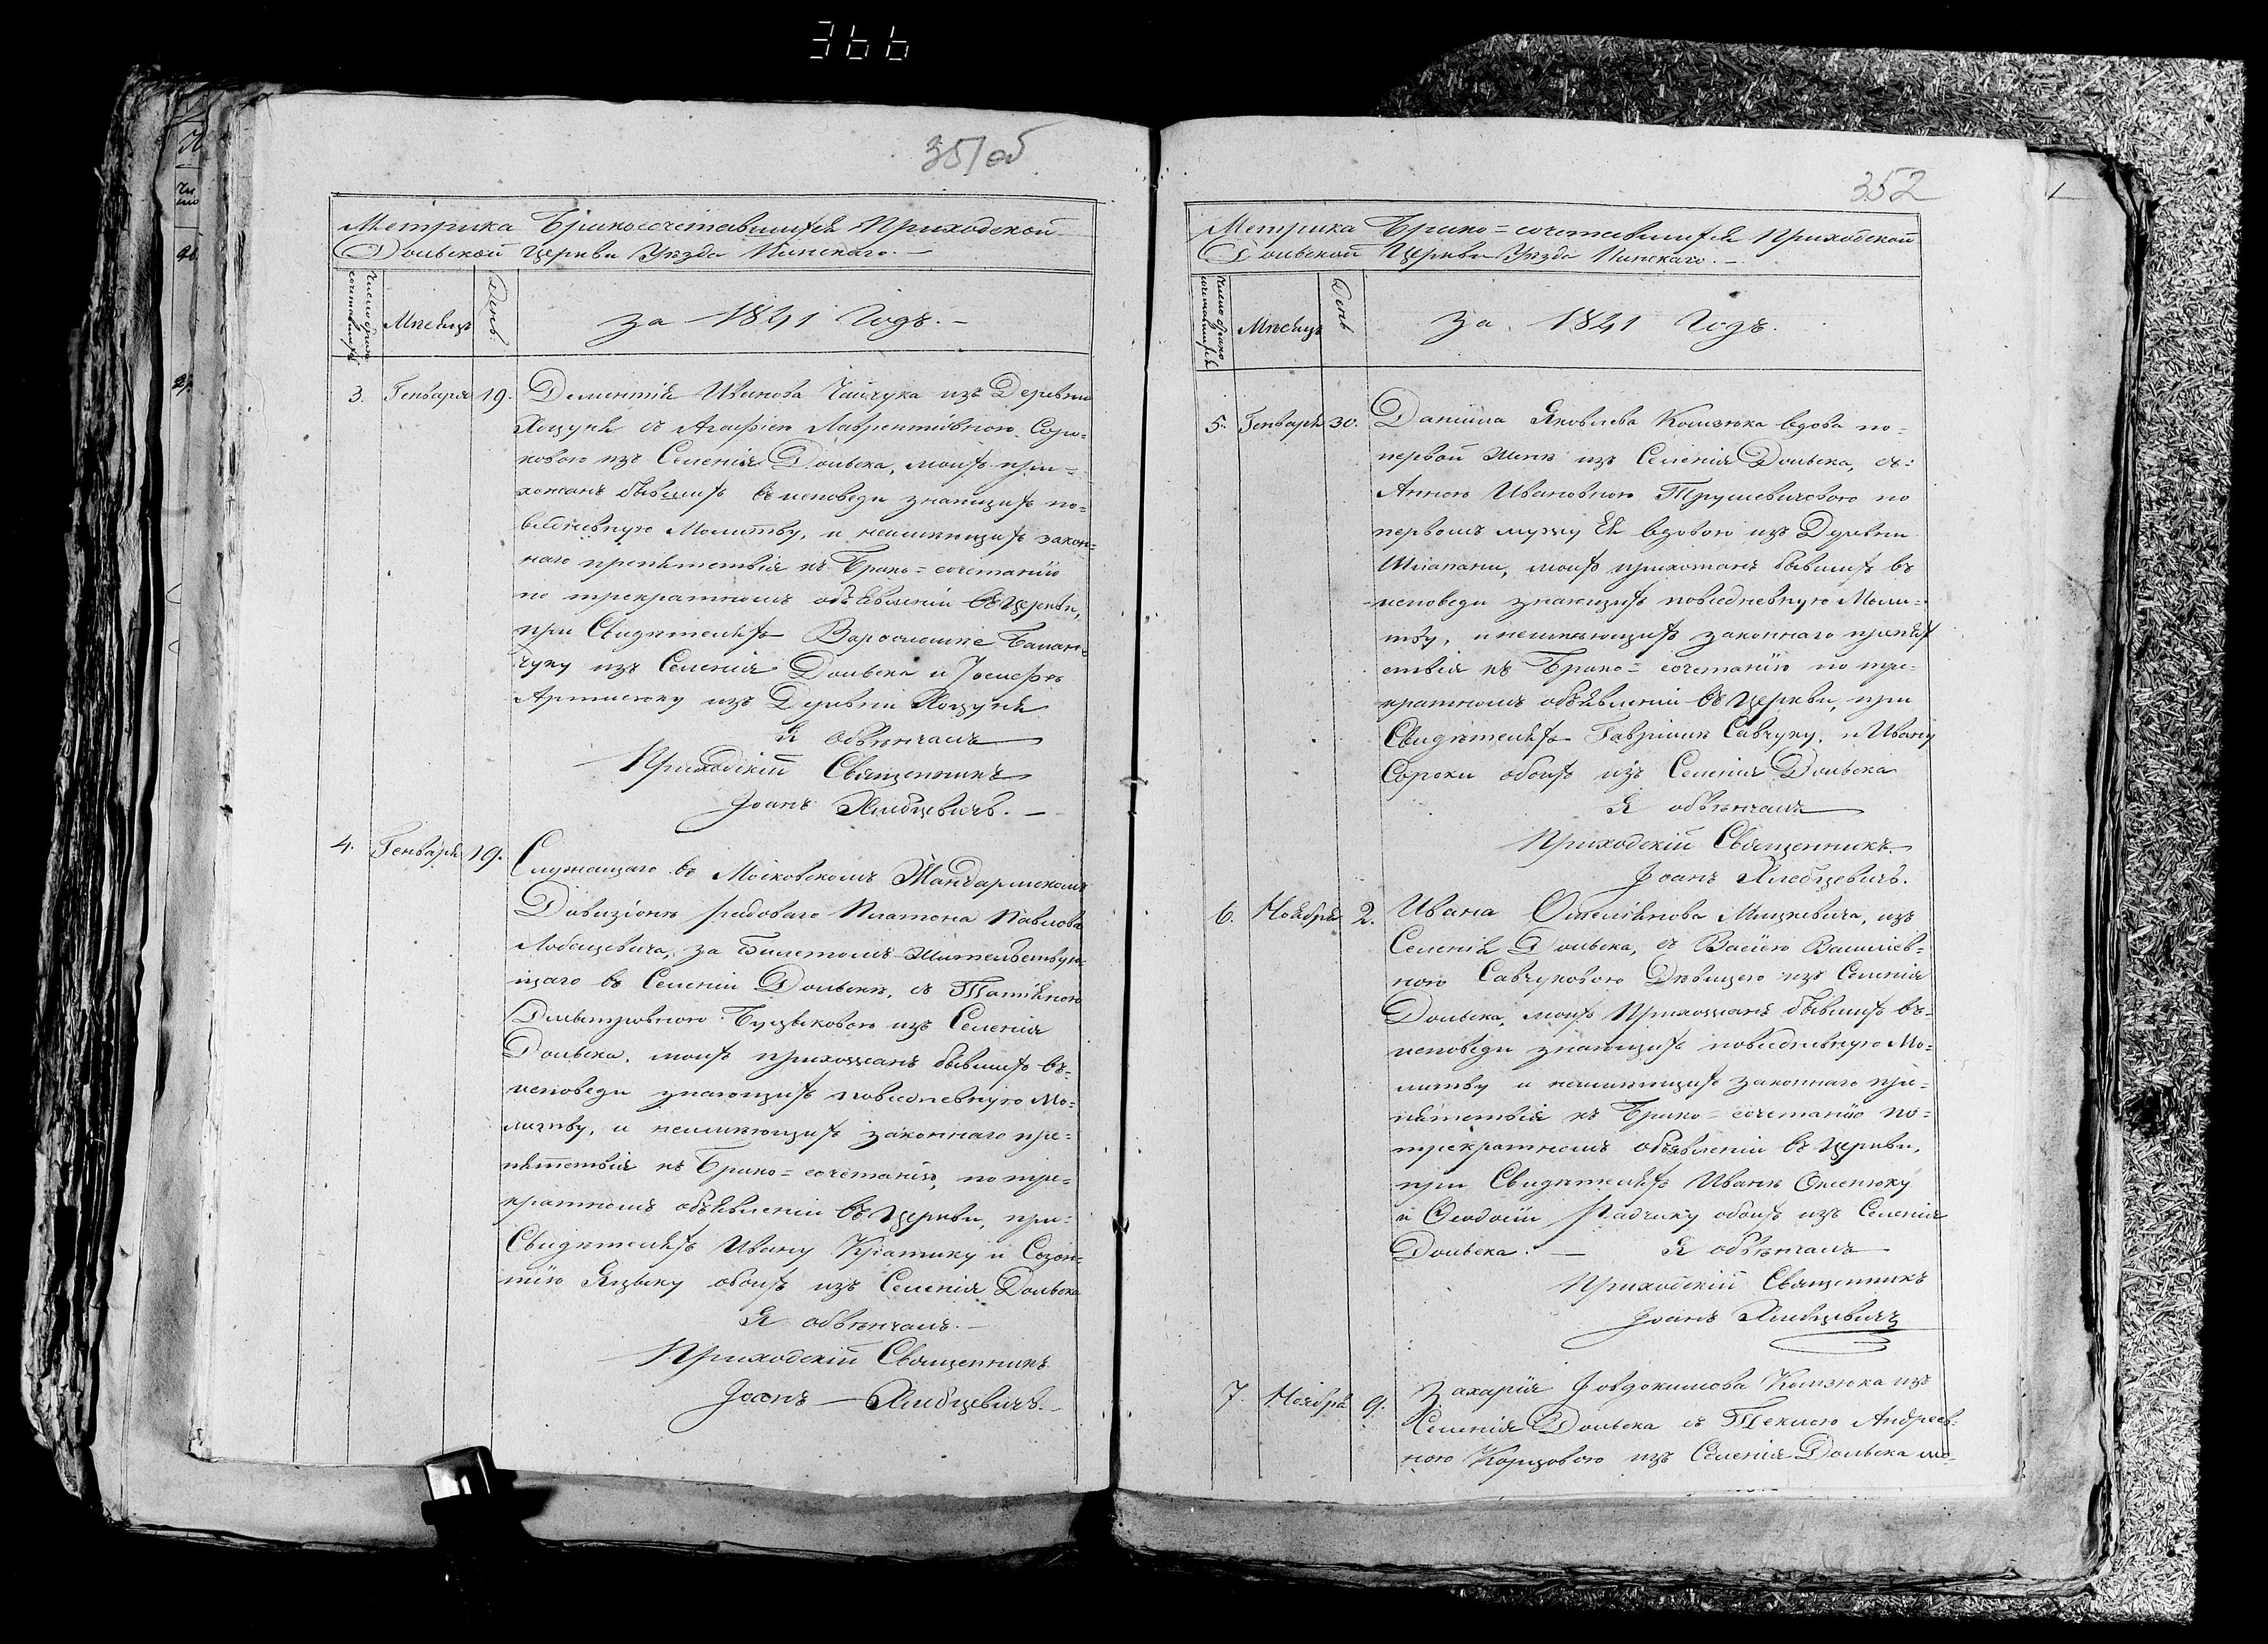 366
351об
Метрика Бракосочетавшихся Приходской
Дольской Церкви Уезда Пинскаго. —
Число брако
сочетавшихся
Месяцъ
День:
за 1841 Годъ. —
3. Генваря 19. Дементія Иванова из Деревни
съ Агафіею Лаврентіевною Соро=
ковою изъ Селенія Дольска, моихъ при=
хожанъ бывшихъ въ исповеди знающихъ по=
вседневную Молитву, и неимеющихъ закон=
наго препятствія къ Брако=сочетанію
по трекратномъ объявленіи въ Церкви,
при Свидетеляхъ
чуку изъ Селенія Дольска и Іосифе
изъ Деревни
Я обвенчалъ
Приходскій Священникъ
Іоанъ Хлебцевичъ. —
4. Генваря 19. Служащаго въ Московскомъ Жандармскомъ
Дивизіоне рядоваго Платона Павлова
за Билетомъ Жительствую=
щаго въ Селеніи Дольске, съ Татіяною
Дмытровною изъ Селенія
Дольска, моихъ прихожанъ бывшихъ въ=
исповеди знающихъ повседневную Мо=
литву, и неимеющихъ законнаго пре=
пятствія къ Брако=сочетанію, по тре=
кратномъ объявленіи въ Церкви, при=
Свидетеляхъ Ивану и Созон=
тію Языку обоихъ изъ Селенія Дольска
Я обвенчалъ. —
Приходскій Священникъ
Іоанъ — Хлебцевичъ. —
352
Метрика Брако=сочетавшихся Приходской
Дольской Церкви Уезда Пинскаго. —
Число брако
сочетавшихся
Месяцъ
День
За 1841 Годъ.
5. Генваря 30. Даніила Яковлева Колзюка вдова по=
первой жене изъ Селенія Дольска, съ:
Анною Ивановною Трушевичовою по
первомъ мужу Ея вдовою изъ Деревни
Шлапани, моихъ прихожанъ бывшихъ въ
исповеди знающихъ повседневную Моли=
тву, и неимеющихъ законнаго препят
ствія къ Брако=сочетанію по тре=
кратномъ объявленіи въ Церкви, при
Свидетеляхъ Гавріиле Савчуку, и Ивану
Сороки обоихъ изъ Селенія Дольска
Я обвенчалъ
Приходскій Священникъ
Іоанъ Хлебцевичъ.
6. Ноября 2. Ивана Омелянова Мицкевича, изъ
Селенія Дольска, съ Васіею Василіев=
ною Савчуковою Девицею изъ Селенія
Дольска, моихъ Прихожанъ бывшихъ въ=
исповеди знающихъ повседневную Мо=
литву и неимеющихъ законнаго пре=
пятствія къ Брако=сочетанію по=
трекратномъ объявленіи въ Церкви,
при Свидетеляхъ Иване Оксенюку
и Феодосіи Радчику обоихъ изъ Селенія
Дольска. — Я обвенчалъ
Приходскій Священникъ
Іоанъ Хлебцевичъ
7. Ноября 9. Захарія Іовдокимова Колзюка изъ
Селенія Дольска съ Теклею Андреев=
ною изъ Селенія Дольска мо=